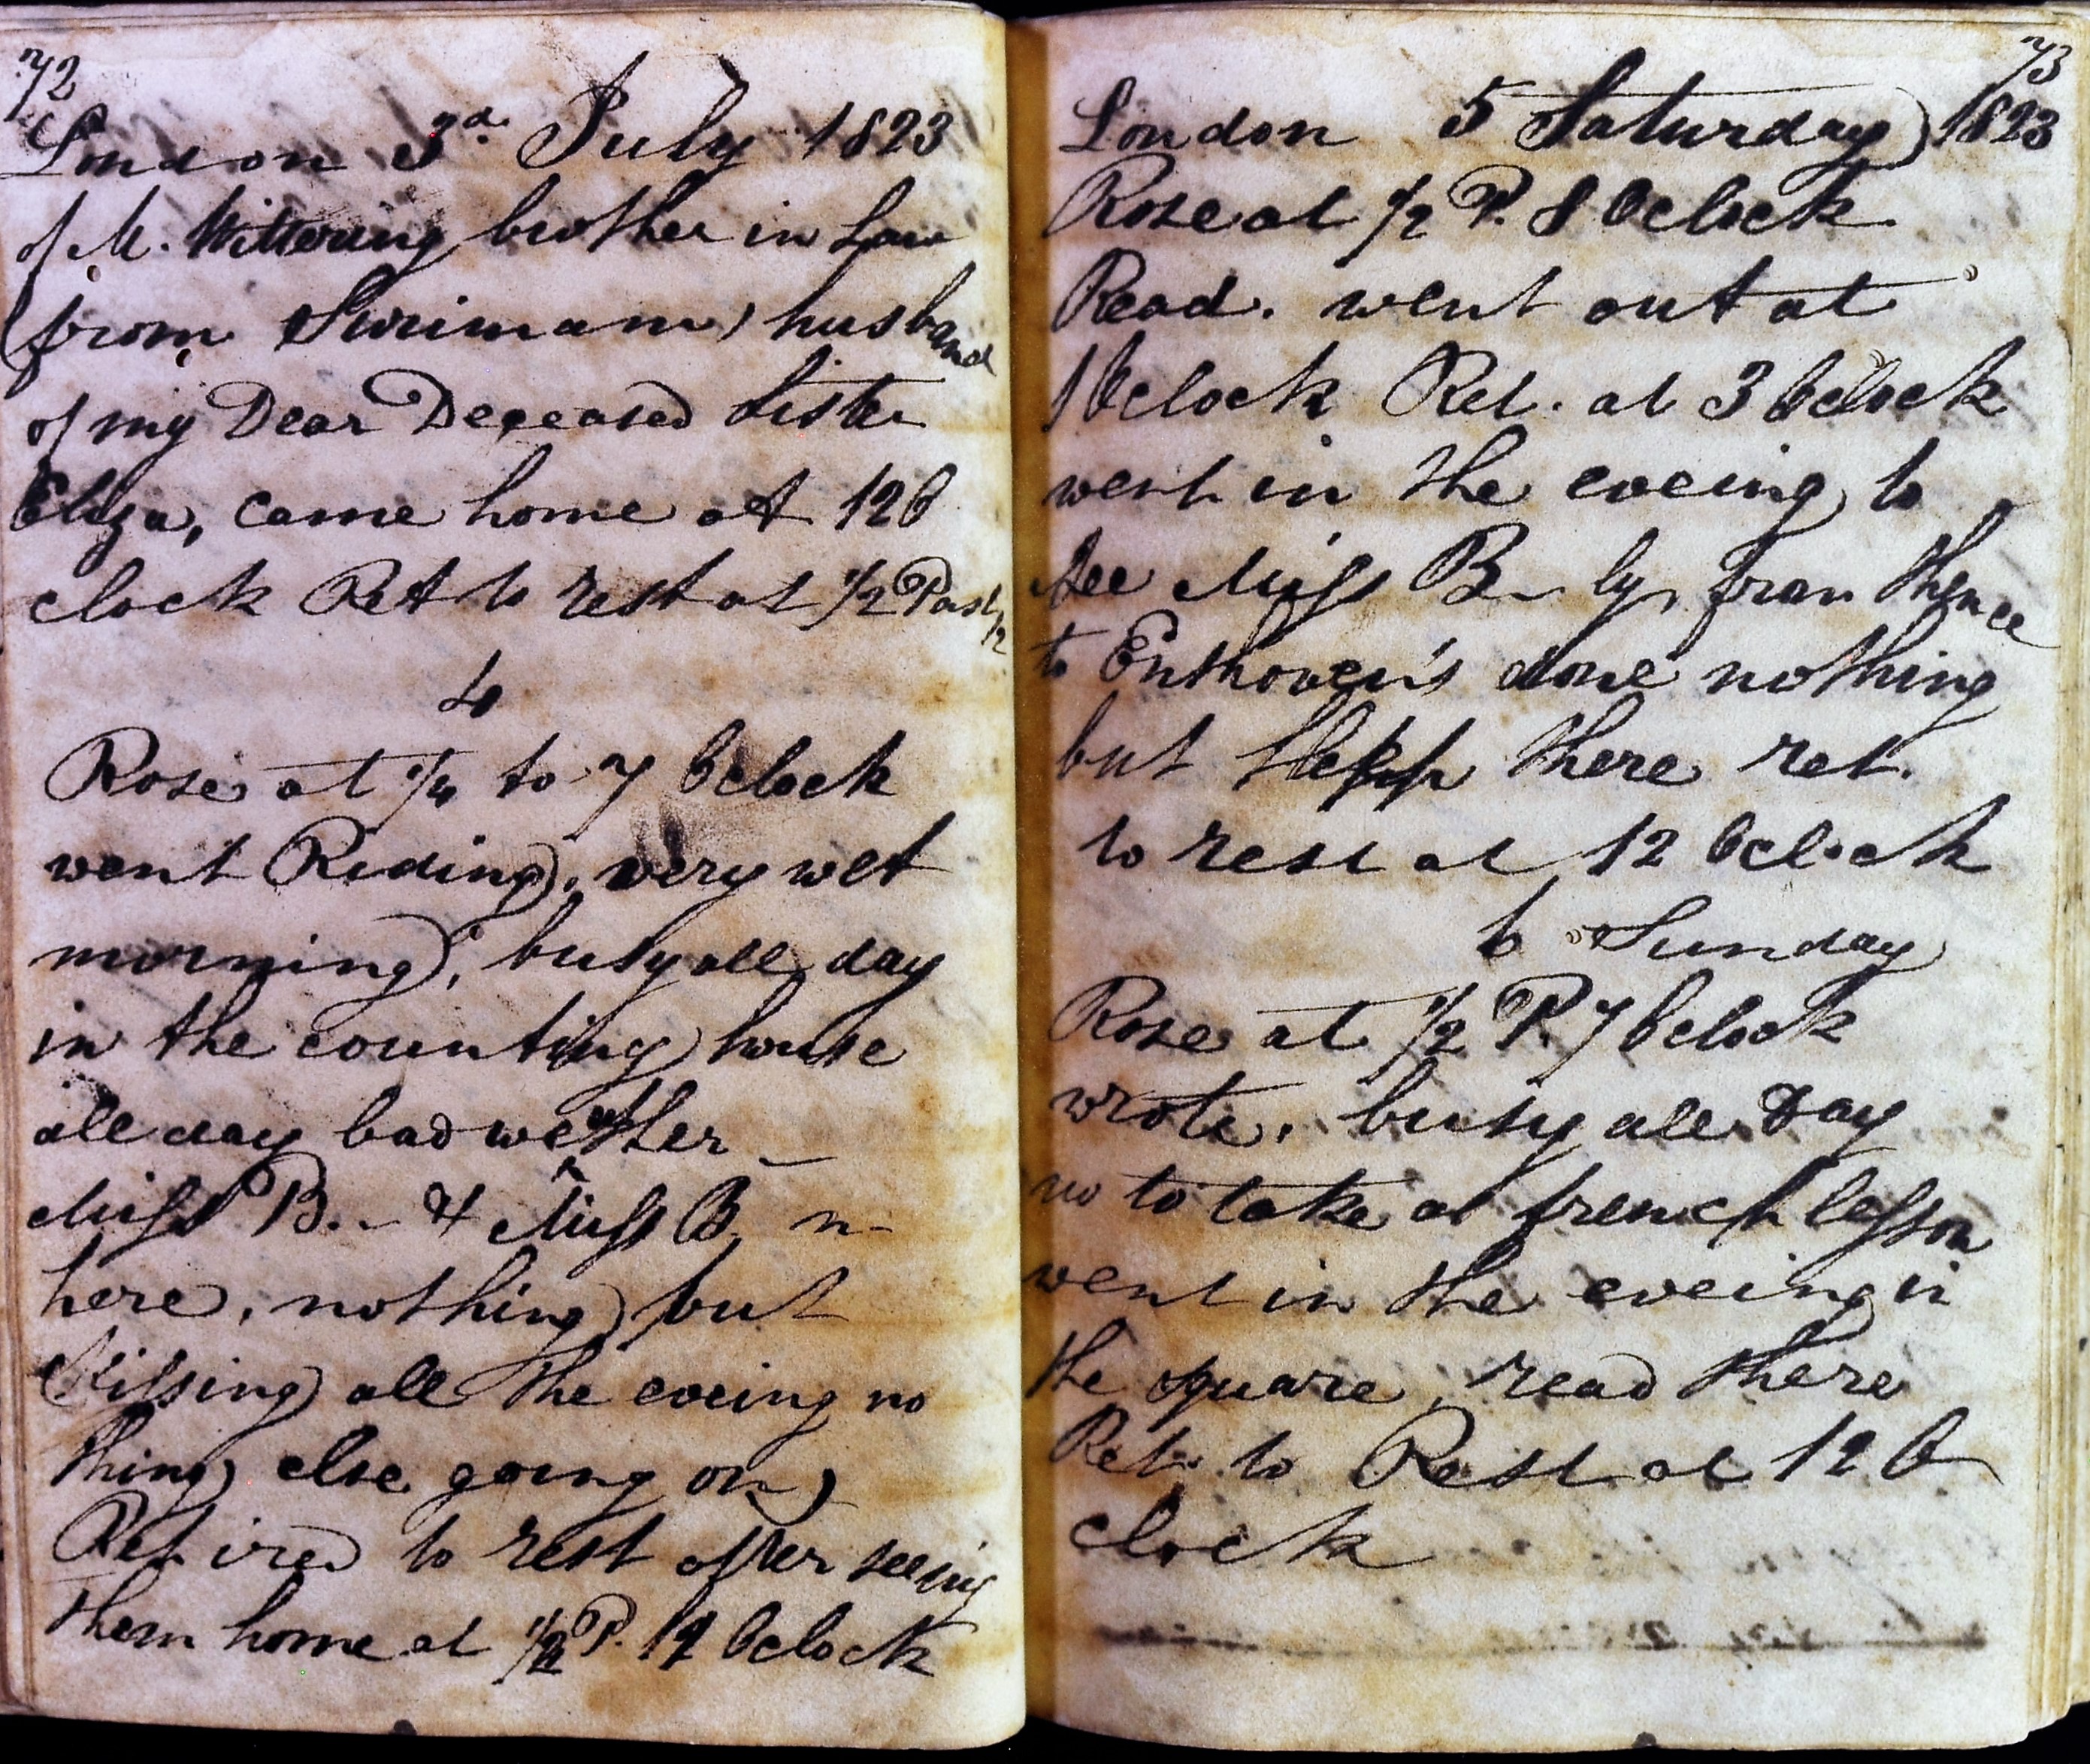 72
London 3d. July 1823
of M. Wittering brother in Law
(from Surimam) husband
of my Dear Deceased Sister
Eliza, came home at 12 O
clock Ret to rest at 1/2 Past 12
4
Rose at 1/4 to 7 Oclock
went Riding, very wet
morning, busy all day
in the counting house
all day bad weather
Miss B. - & Miss B n-
here, nothing but
Kissing all the eveing no
thing else going on,
Retired to rest after seeing
them home at 1/2 P. 12 Oclock
73
London 5 Saturday 1823
Rose at 1/2 P. 8 Oclock
Read. went out at
1 Oclock Ret. at 3 Oclock
went in the eveing to
see Miss B - ly, from thence
to Enthoven's done nothing
but there ret.
to rest at 12 Oclock
6 Sunday
Rose at 1/2 P. 7 Oclock
wrote, busy all Day
no to take a french lesson
went in the eveing in
the square, read there
Ret. to Rest at 12 O
clock